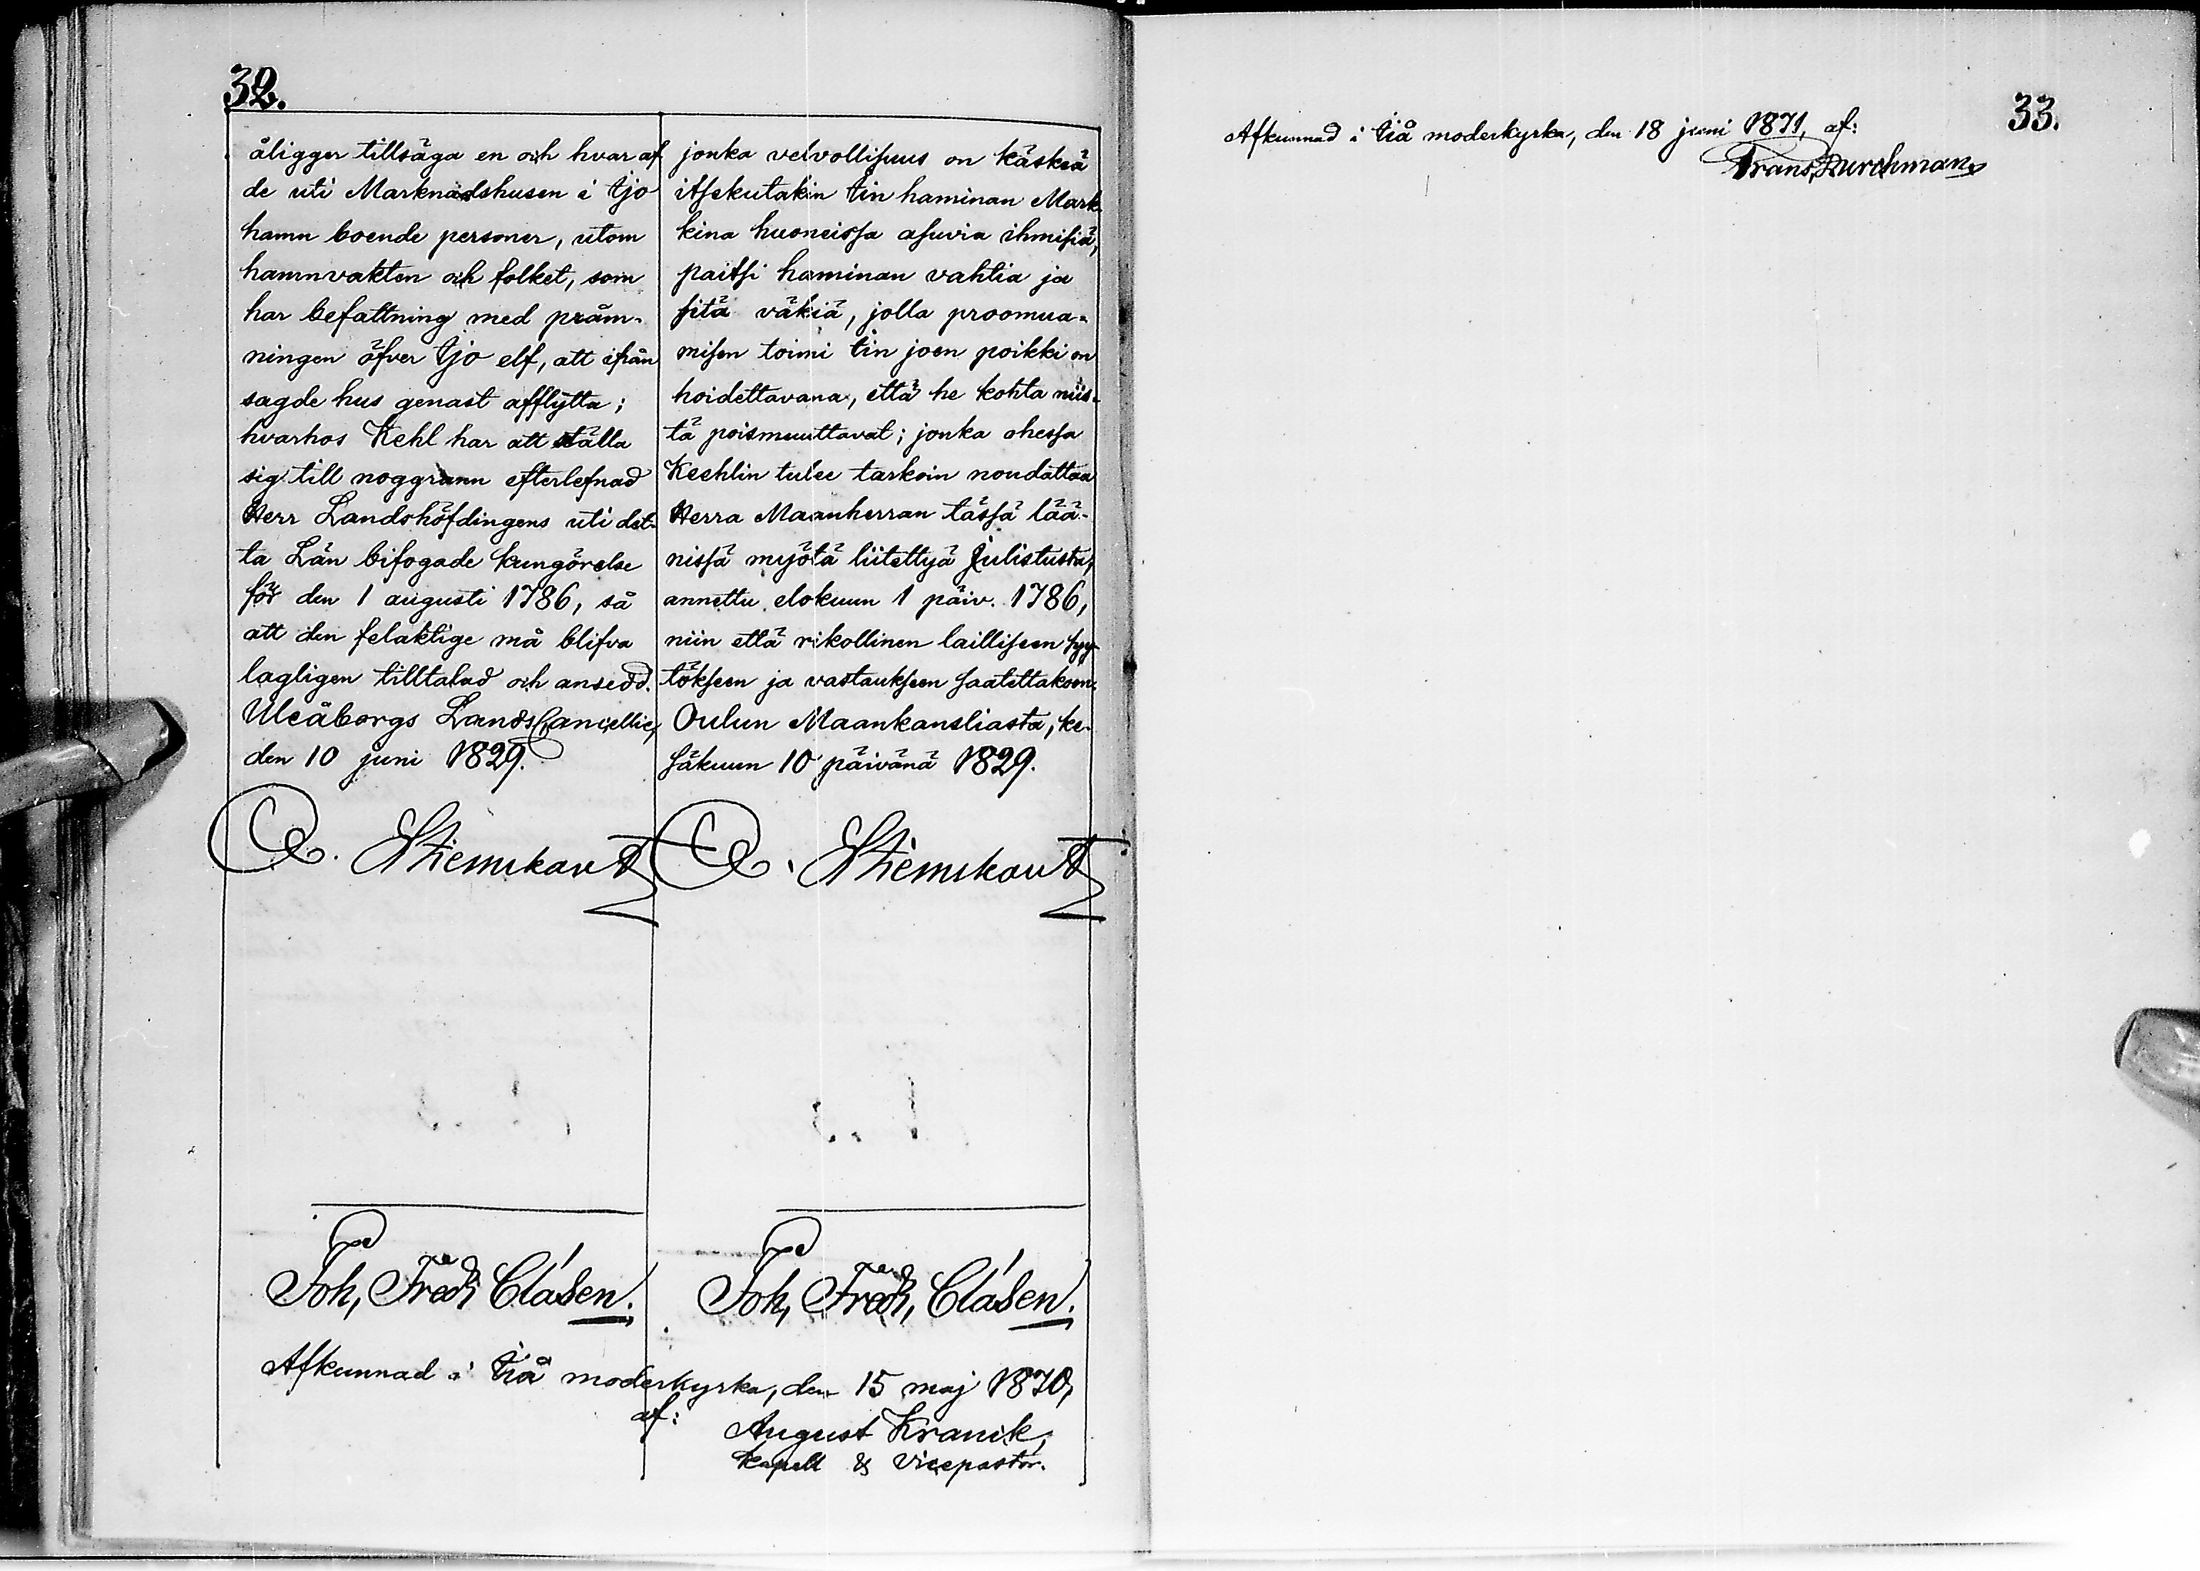 32.
åligger tillsäga en och hvar af
de uti Marknadshusen i Ijo
hamn boende personer, utom
hamnvakten och folket, som
har befattning med präm-
ningen öfver Ijo elf, att ifrån
sagde hus genast afflytta;
hvarhos Kehl har att ställa
sig till noggrann efterlefnad
Herr Landshöfdingens uti det-
ta Län bifogade kungörelse
för den 1 augusti 1786, så
att den felaktige må blifva
lagligen tilltalad och ansedd.
Uleåborgs LandsCancellie,
den 10 juni 1829.
Stiernskantz
Joh, Fredr Clásen.
jonka velvollisuus on käskiä
itsekutakin Iin haminan Mark-
kina huoneissa asuvia ihmisiä,
paitsi haminan vahtia ja
sitä väkiä, jolla proomua-
misen toimi Iin joen poikki on
hoidettavana, että he kohta niis-
tä poismuuttavat; jonka ohessa
Keehlin tulee tarkoin noudattaa
Herra Maanherran tässä lää-
nissä myötä liitettyä Julistusta,
annettu elokuun 1 päiv. 1786,
niin että rikollinen lailliseen syy-
tökseen ja vastaukseen saatettakoon.
Oulun Maankansliasta, ke-
säkuun 10 päivänä 1829.
Stiernskantz
Joh, Fredr, Clásen.
Afkunnad i Iiå moderkyrka, den 15 maj 1870,
af:
August Kranck,
kapell & vicepastor.
33.
Afkunnad i Iiå moderkyrka, den 18 juni 1871, af:
Frans Durchman